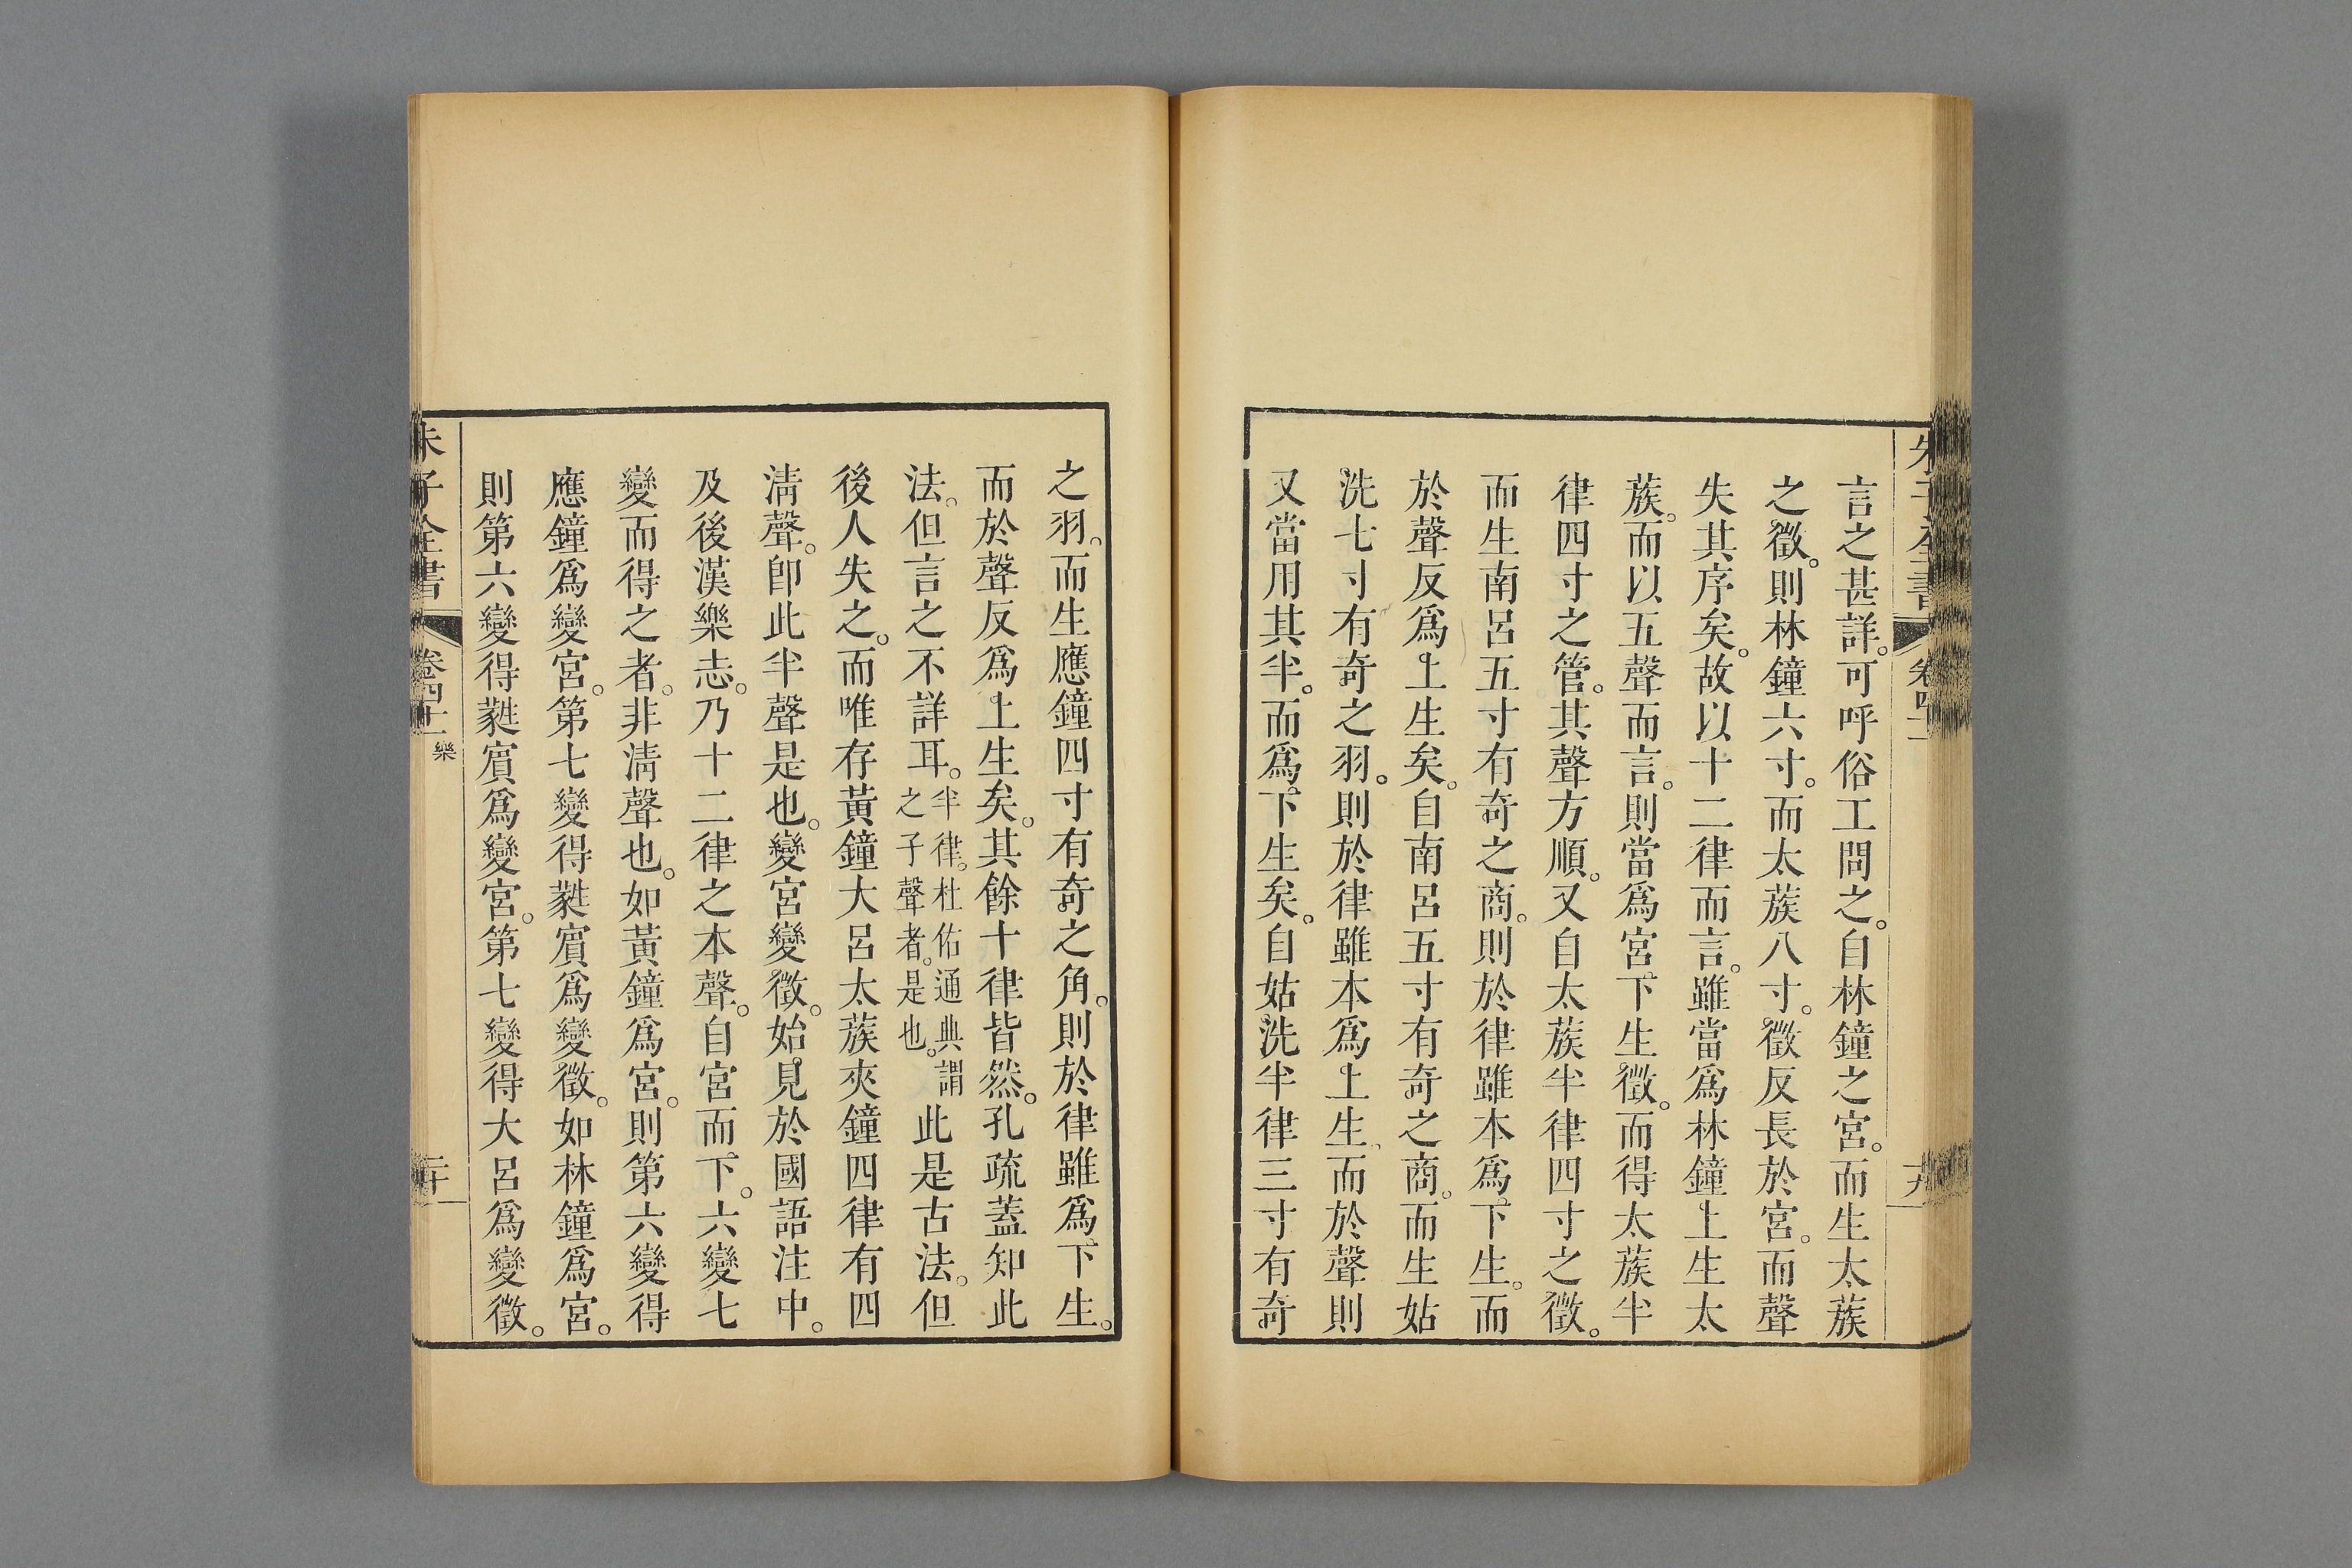 言之甚詳。可呼俗工問之。自林鐘之宮。而生太蔟
之徵。則林鐘六寸。而太蔟八寸。徵反長於宮。而聲
失其序矣。故以十二律而言。雖當爲林鐘上生太
蔟。而以五聲而言。則當爲宮下生徵。而得太蔟半
律四寸之管。其聲方順。又自太蔟半律四寸之徵。
而生南呂五寸有奇之商。則於律雖本爲下生。而
於聲反爲上生矣。自南呂五寸有奇之商。而生姑
洗七寸有奇之羽。則於律雖本爲上生、而於聲則
又當用其半。而爲下生矣。自姑洗半律三寸有奇
之羽。而生應鐘四寸有奇之角。則於律雖爲下生。
而於聲反爲上生矣。其餘十律皆然。孔疏蓋知此
法。但言之不詳耳。半律。杜佑通典謂之子聲者。是也。此是古法。但
後人失之。而唯存黃鐘大呂太蔟夾鐘四律有四
淸聲。卽此半聲是也。變宮變徵。始見於國語注中。
及後漢樂志。乃十二律之本聲。自宮而下。六變七
變而得之者。非淸聲也。如黃鐘爲宮。則第六變得
應鐘爲變宮。第七變得蕤賓爲變徵。如林鐘爲宮。
則第六變得蕤賓爲變宮。第七變得大呂爲變徵。
朱子全書
卷四十一
樂
二十